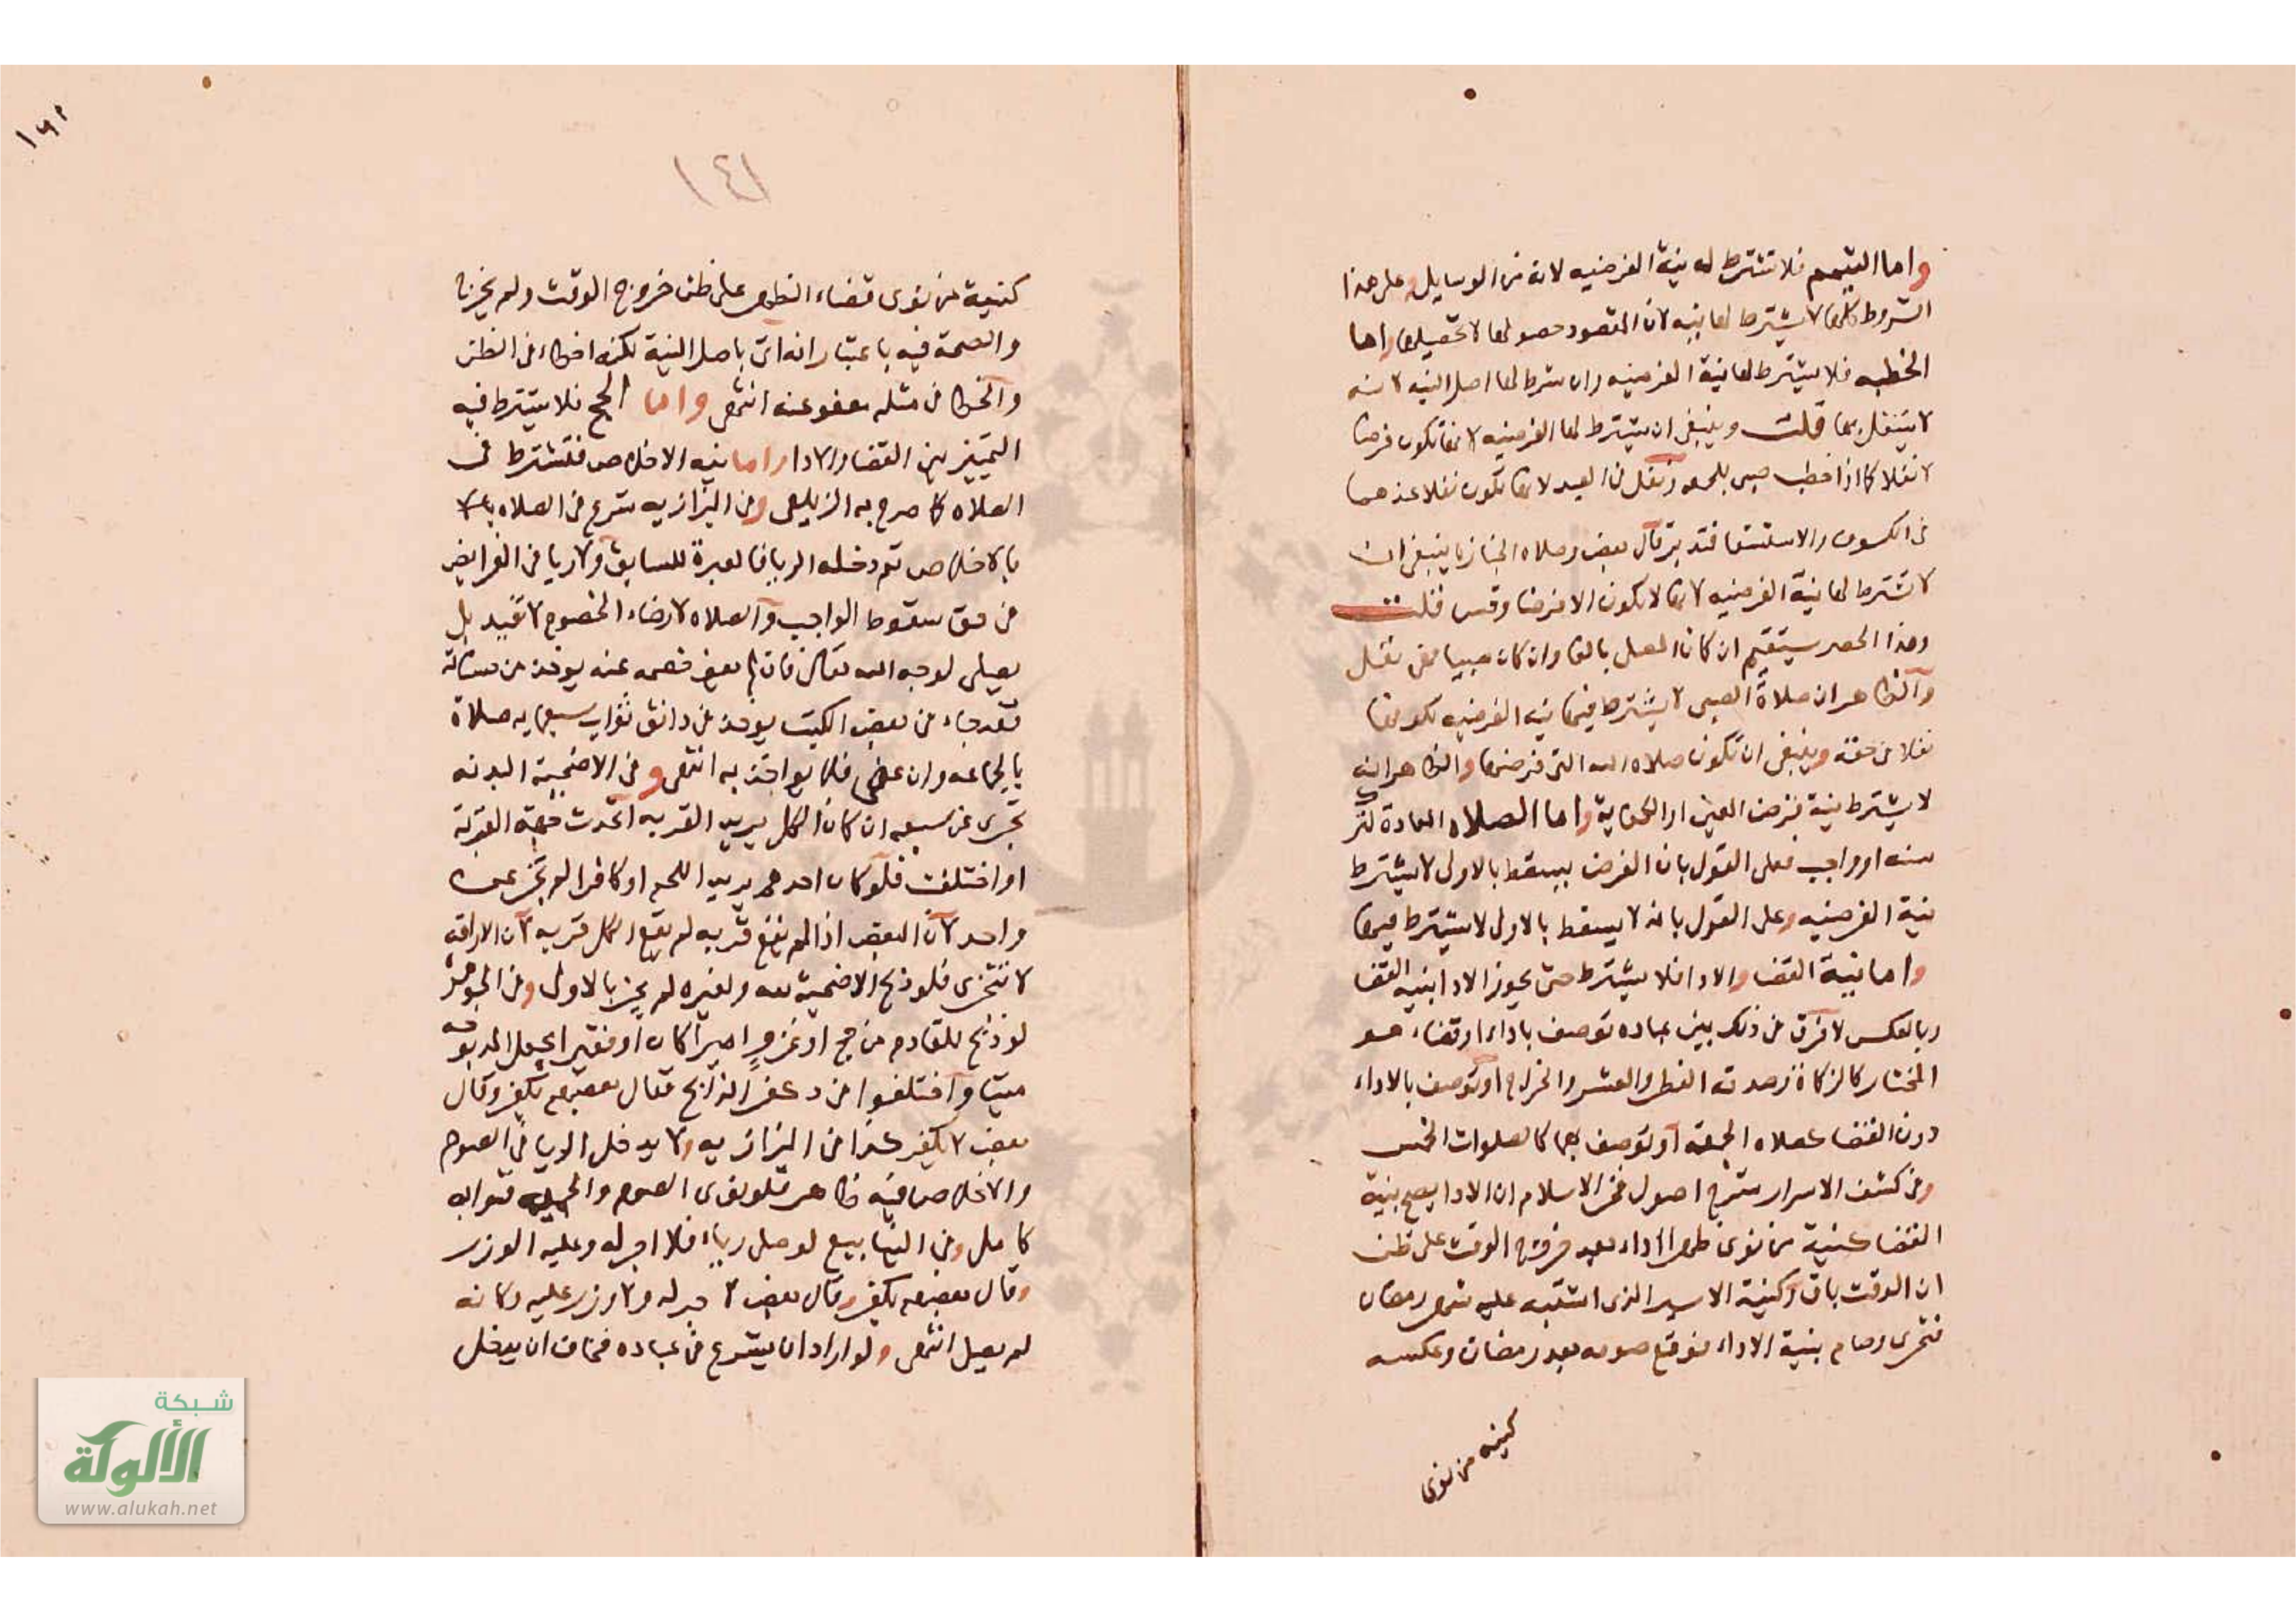 واما التيمم فلا تشترط له نية الفرضيه لانه من الوسايل وعلى هذا
الشروط كلها لا يشترط لها نيه لان المقصود حصولها لا تحصيلها واما
الخطبه فلا يشترط لها نية الفرضيه وان شرط لها اصل النيه لانه
لا يتنفل بها قلت وينبغي ان يشترط لها الفرضيه لانها تكون فرضا
لا نفلا كما اذا خطب صبي بلحمه ونفل في العيد لانها تكون نفلا عندهما
في الكسوف والاستسقا فتدبر قال بعض وصلاه الجنازه ينبغي ان
لا تشترط لها نية الفرضيه لانها لا تكون الا فرضا وقس قلت
وهذا الحصر سيتقيم ان كان المصلى بالغا وان كان صبيا فهي نفل
والظاهر ان صلاة الصبي لا يشترط فيها نيه الفرضيه لكونها
نفلا في حقه وينبغي ان تكون صلاه الله التي فرضها والظاهر انه
لا يشترط نية فرض العين او الكفاية واما الصلاه المعادة لترك
سنه او واجب فعلى القول بان الفرض يسقط بالاولى لا يشترط
نية الفرضيه وعلى القول بانه لا يسقط بالاولى لا يشترط فيها
واما نية القضا والادا فلا يشترط حتى يجوز الادا بنيه القضا
وبالعكس لا فرق في ذلك بين عباده توصف باداء او قضاء هو
المختار كالزكاة وصدقة الفطر والعشر والخراج او توصف بالاداء
دون القضا كصلاه الجمعة او توصف بهما كالصلوات الخمس
وفي كشف الاسرار شرح اصول فخر الاسلام ان الادا يصح بنية
القضا كنية من نوى ظهرا اداء بعد خروج الوقت على ظن
ان الوقت باق وكنية الاسير الذى اشتبه عليه شهر رمضان
فتحرى وصام بنية الاداء فوقع صومه بعد رمضان وعكسه
كنيه من نوى
١٤٢
١٤١
كنية من نوى قضاء الظهر على ظن خروج الوقت ولم يخرج
والصحة فيه باعتبار انه اتى باصل النية لكنه اخطاء في الظن
والخطا في مثله معفو عنه انتهى واما الحج فلا يشترط فيه
التمييز بين القضا والادا واما نيه الاخلاص فتشترط في
الصلاه كما صرح به الزيلعي وفي البزازيه شرع في الصلاه
بالاخلاص ثم دخله الريا فالعبرة للسابق ولا ريا في الفرايض
في حق سقوط الواجب والصلاه لارضاء الخصوم لا تفيد بل
يصلى لوجه الله تعالى فان لم يعف خصمه عنه يوخذ من حسناته
فقد جاء في بعض الكتب يوخذ في دانق ثواب سبعمايه صلاة
بالجماعه وان عفى فلا يواخذ به انتهى وفي الاضحية البدنه
تجزى عن سبعه ان كان الكل يريد القربه اتحدت جهة القربة
او اختلفت فلو كان احدهم يريد اللحم او كافرا لم تجز عن
واحد لان البعض اذا لم يقع قربه لم يقع الكل قربه لان الاراقه
لا تتجزى فلو ذبح الاضحية لله ولغيره لم يجز بالاولى وفي الجوهر
لو ذبح للقادم من حج او غزو اميرا كان او فقيرا يجعل المذبوحه
ميتا واختلفوا في كفر الذابح فقال بعضهم يكفر وقال
بعض لا يكفر كذا في البزازيه ولا يدخل الريا في الصوم
والاخلاص فيه ظاهر فلو نوى الصوم والحمية ثوابه
كامل وفي الينابيع لو صلى رياء فلا اجر له وعليه الوزر
وقال بعضهم يكفر وقال بعض لا اجر له ولا وزر عليه وكانه
لم يصل انتهى ولو اراد ان يشرع في عباده فخاف ان يدخل
شبكة
الألوكة
www.alukah.net